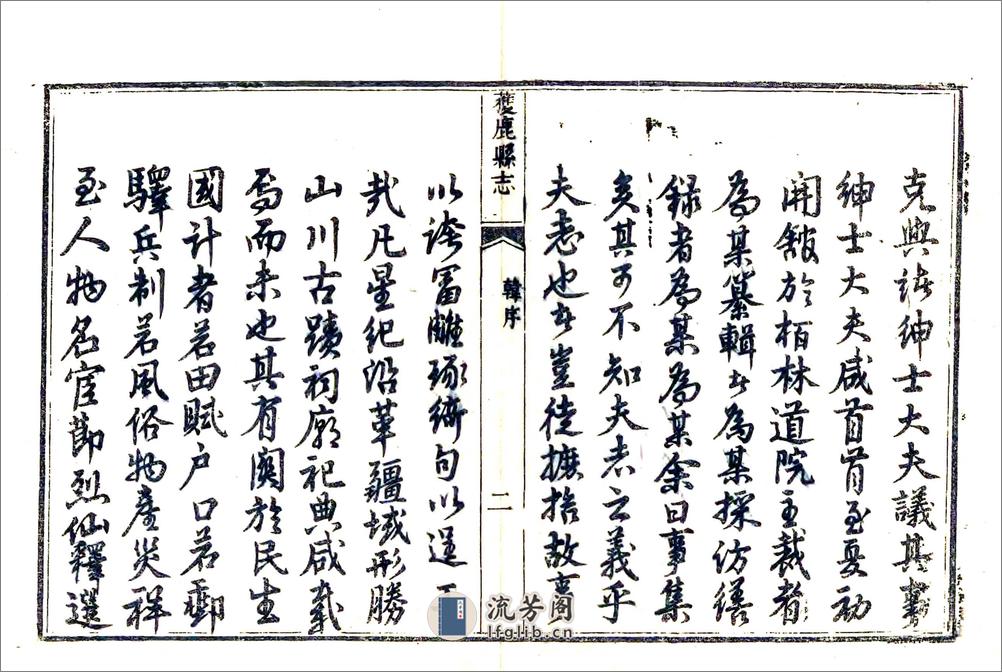 克與諸紳士大夫議其書
紳士大夫咸首肯至夏初
開舘於栢林道院主裁者
為某纂輯者為某採訪繕
録者為某為某余曰事集
矣其可不知夫志之義乎
夫志也者豈徒摭拾故事
獲鹿縣志
韓序
二
以誇富雕琢句以逞工
哉凡星紀沿革疆域形勝
山川古蹟祠廟祀典咸載
焉而未也其有關於民生
國計者若田賦户口若郵
驛兵制若風俗物產災祥
至人物名宦節烈仙釋選
流芳阁
lfglib.cn